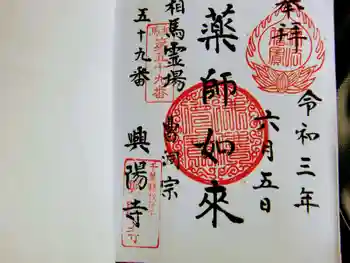 奉拝
令和三年
六月五日
薬師如来
曹洞宗
相馬霊場
五十九番
興陽寺